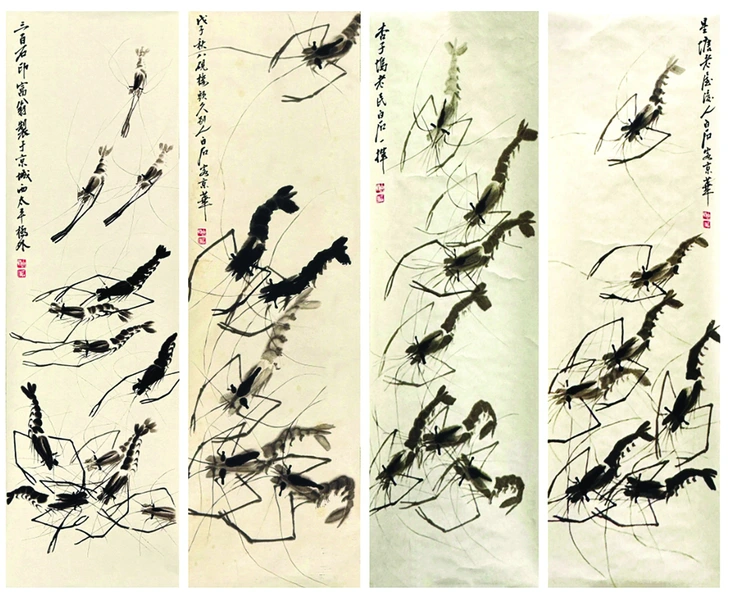 三百石印富翁製于京城西太平橋外
戊子秋八硯樓頭久別人白石寓京華
杏子塢老民白石一揮
星塘老屋後人白石寓京華